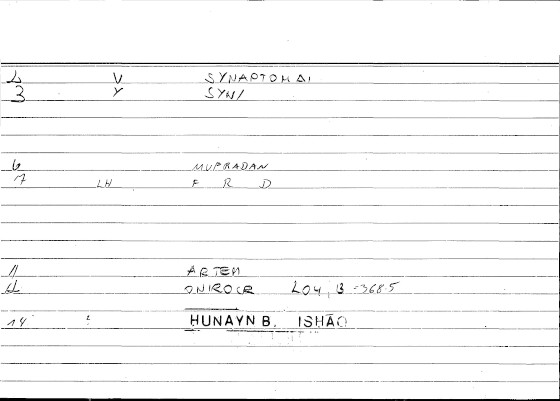 2 V SYNAPTOMAI
3 Y SYN/
6 MUPRADAN
7 LH F R D
11 ARTEM
12 ONIROCR LOU, B-3685
14 : HUNAYN B. ISHĀQ